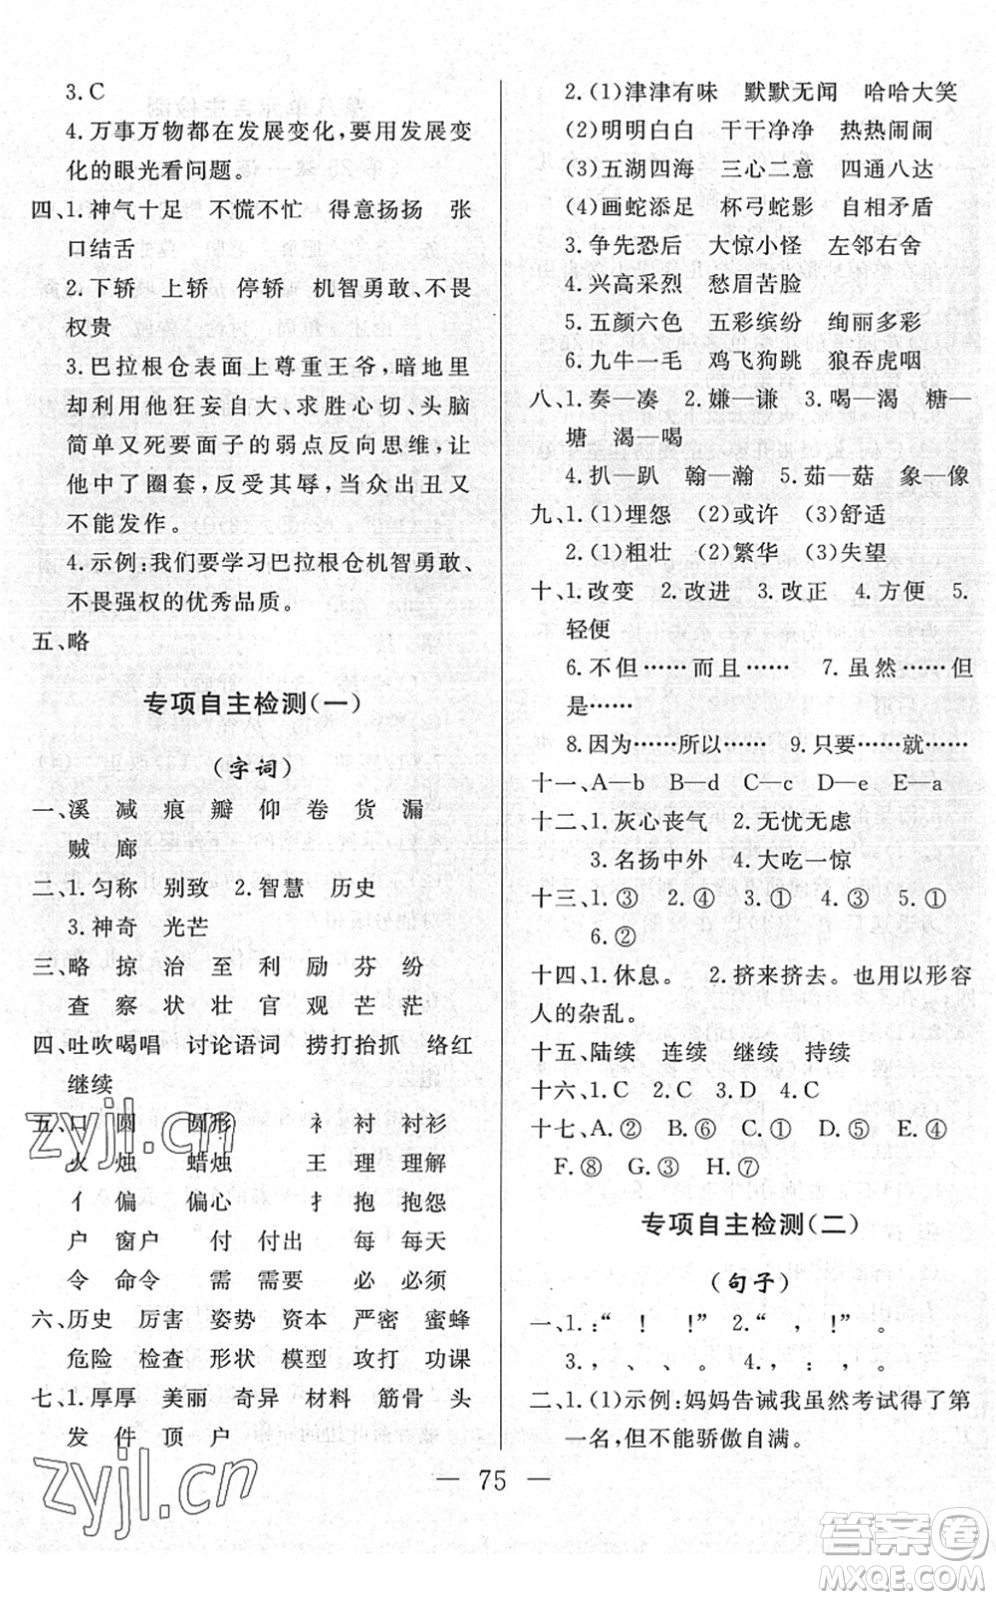 3.C
4.万事万物都在发展变化,要用发展变
化的眼光看问题。
四、1.神气十足 不慌不忙 得意扬扬 张
口结舌
2.下轿 上轿 停轿 机智勇敢、不畏
权贵
3.巴拉根仓表面上尊重王爷,暗地里
却利用他狂妄自大、求胜心切、头脑
简单又死要面子的弱点反向思维,让
他中了圈套,反受其辱,当众出丑又
不能发作。
4.示例:我们要学习巴拉根仓机智勇敢、
不畏强权的优秀品质。
五、略
专项自主检测(一)
(字词)
一、溪 减 痕 瓣 仰 卷 货 漏
贼 廊
二、1.匀称 别致 2.智慧 历史
3.神奇 光芒
三、略 掠 治 至 利 励 芬 纷
查 察 状 壮 官 观 芒 茫
四、吐吹喝唱 讨论语词 捞打抬抓 络红
继续
五、口 圆 圆形 衤 衬 衬衫
火 烛 蜡烛 王 理 理解
亻 偏 偏心 扌 抱 抱怨
户 窗户 付 付出 每 每天
令 命令 需 需要 必 必须
六、历史 厉害 姿势 资本 严密 蜜蜂
危险 检查 形状 模型 攻打 功课
七、1.厚厚 美丽 奇异 材料 筋骨 头
发 件 顶 户
2.(1)津津有味 默默无闻 哈哈大笑
(2)明明白白 干干净净 热热闹闹
(3)五湖四海 三心二意 四通八达
(4)画蛇添足 杯弓蛇影 自相矛盾
3.争先恐后 大惊小怪 左邻右舍
4.兴高采烈 愁眉苦脸
5.五颜六色 五彩缤纷 绚丽多彩
6.九牛一毛 鸡飞狗跳 狼吞虎咽
八、1.奏—凑 2.嫌—谦 3.喝—渴 糖—
塘 渴—喝
4.扒—趴 翰—瀚 5.茹—菇 象—像
九、1.(1)埋怨 (2)或许 (3)舒适
2.(1)粗壮 (2)繁华 (3)失望
十、1.改变 2.改进 3.改正 4.方便 5.
轻便
6.不但……而且…… 7.虽然……但
是……
8.因为……所以…… 9.只要……就……
十一、A—b B—d C—c D—e E—a
十二、1.灰心丧气 2.无忧无虑
3.名扬中外 4.大吃一惊
十三、1.③ 2.② 3.① 4.③ 5.①
6.②
十四、1.休息。 2.挤来挤去。也用以形容
人的杂乱。
十五、陆续 连续 继续 持续
十六、1.C 2.C 3.D 4.C
十七、A.② B.⑥ C.① D.⑤ E.④
F.⑧ G.③ H.⑦
专项自主检测(二)
(句子)
一、1.:“ ! !” 2.“ , !” 。
3., 、 、 。 4., : , 。
二、1.(1)示例:妈妈告诫我虽然考试得了第
一名,但不能骄傲自满。
— 75 —
zyjl.cn
zyjl.cn
答案圈
MXQE.COM